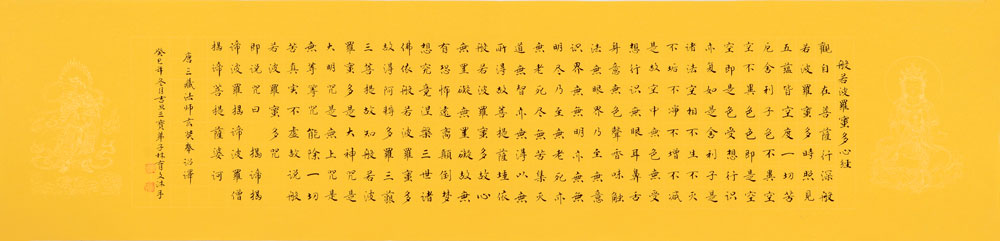 般若波羅蜜多心經
觀自在菩薩行深般
若波羅蜜多時照見
五蘊皆空度一切苦
厄舍利子色不異空
空不異色色即是空
空即是色受想行識
亦復如是舍利子是
諸法空相不生不滅
不垢不淨不增不減
是故空中無色無受
想行識無眼耳鼻舌
身意無色聲香味觸
法無眼界乃至無意
識界無無明亦無無
明盡乃至無老死亦
無老死盡無苦集滅
道無智亦無得以無
所得故菩提薩埵依
般若波羅蜜多故心
無罣礙無罣礙故無
有恐怖遠離顛倒夢
想究竟涅槃三世諸
佛依般若波羅蜜多
故得阿耨多羅三藐
三菩提故知般若波
羅蜜多是大神咒是
大明咒是無上咒是
無等等咒能除一切
苦真實不虛故說般
若波羅蜜多咒
即說咒曰 揭諦揭
諦波羅揭諦波羅僧
揭諦菩提薩婆訶
唐三藏法師玄奘奉詔譯
癸巳年冬月吉日三寶弟子林育文沐手